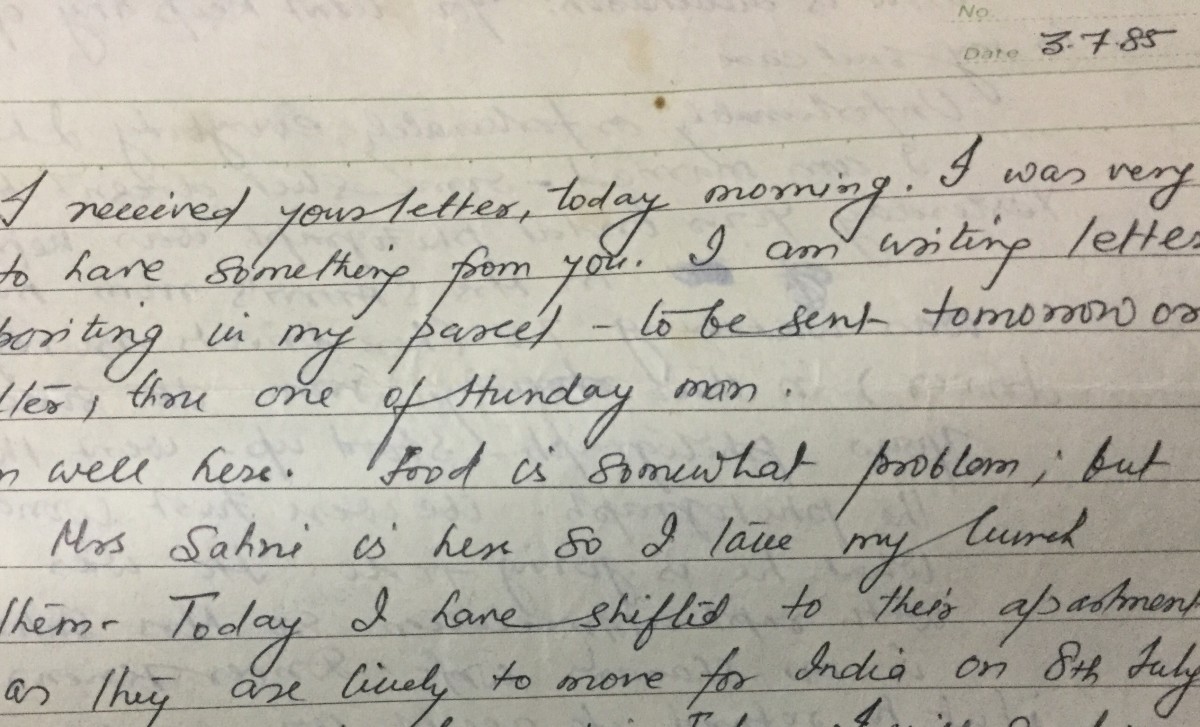 No
Date 3.7.85
I received your letter, today morning. I was very
to have something from you. I am writing letter
in my parcel - to be sent tomorrow or
thru one of Hunday man.
well here. Food is somewhat problem; but
Mrs Sahni is here so I take my lunch
them. Today I have shifted to their apartment
as they are likely to move for India on 8th July